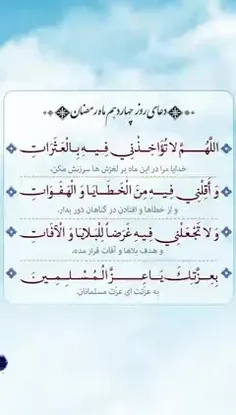 دعای روز چهاردهم ماه رمضان
اللَّهُمَّ لا تُؤَاخِذْنِي فِيهِ بِالْعَثَرَاتِ
خدایا مرا در این ماه بر لغزش ها سرزنش مکن،
وَ أَقِلْنِي فِيهِ مِنَ الْخَطَايَا وَ الْهَفَوَاتِ
و از خطاها و افتادن در گناهان دور بدار،
وَ لا تَجْعَلْنِي فِيهِ غَرَضاً لِلْبَلايَا وَ الْآفَاتِ
و هدف بلاها و آفات قرار مده،
بِعِزَّتِكَ يَا عِزَّ الْمُسْلِمِينَ
به عزتت ای عزت مسلمانان.